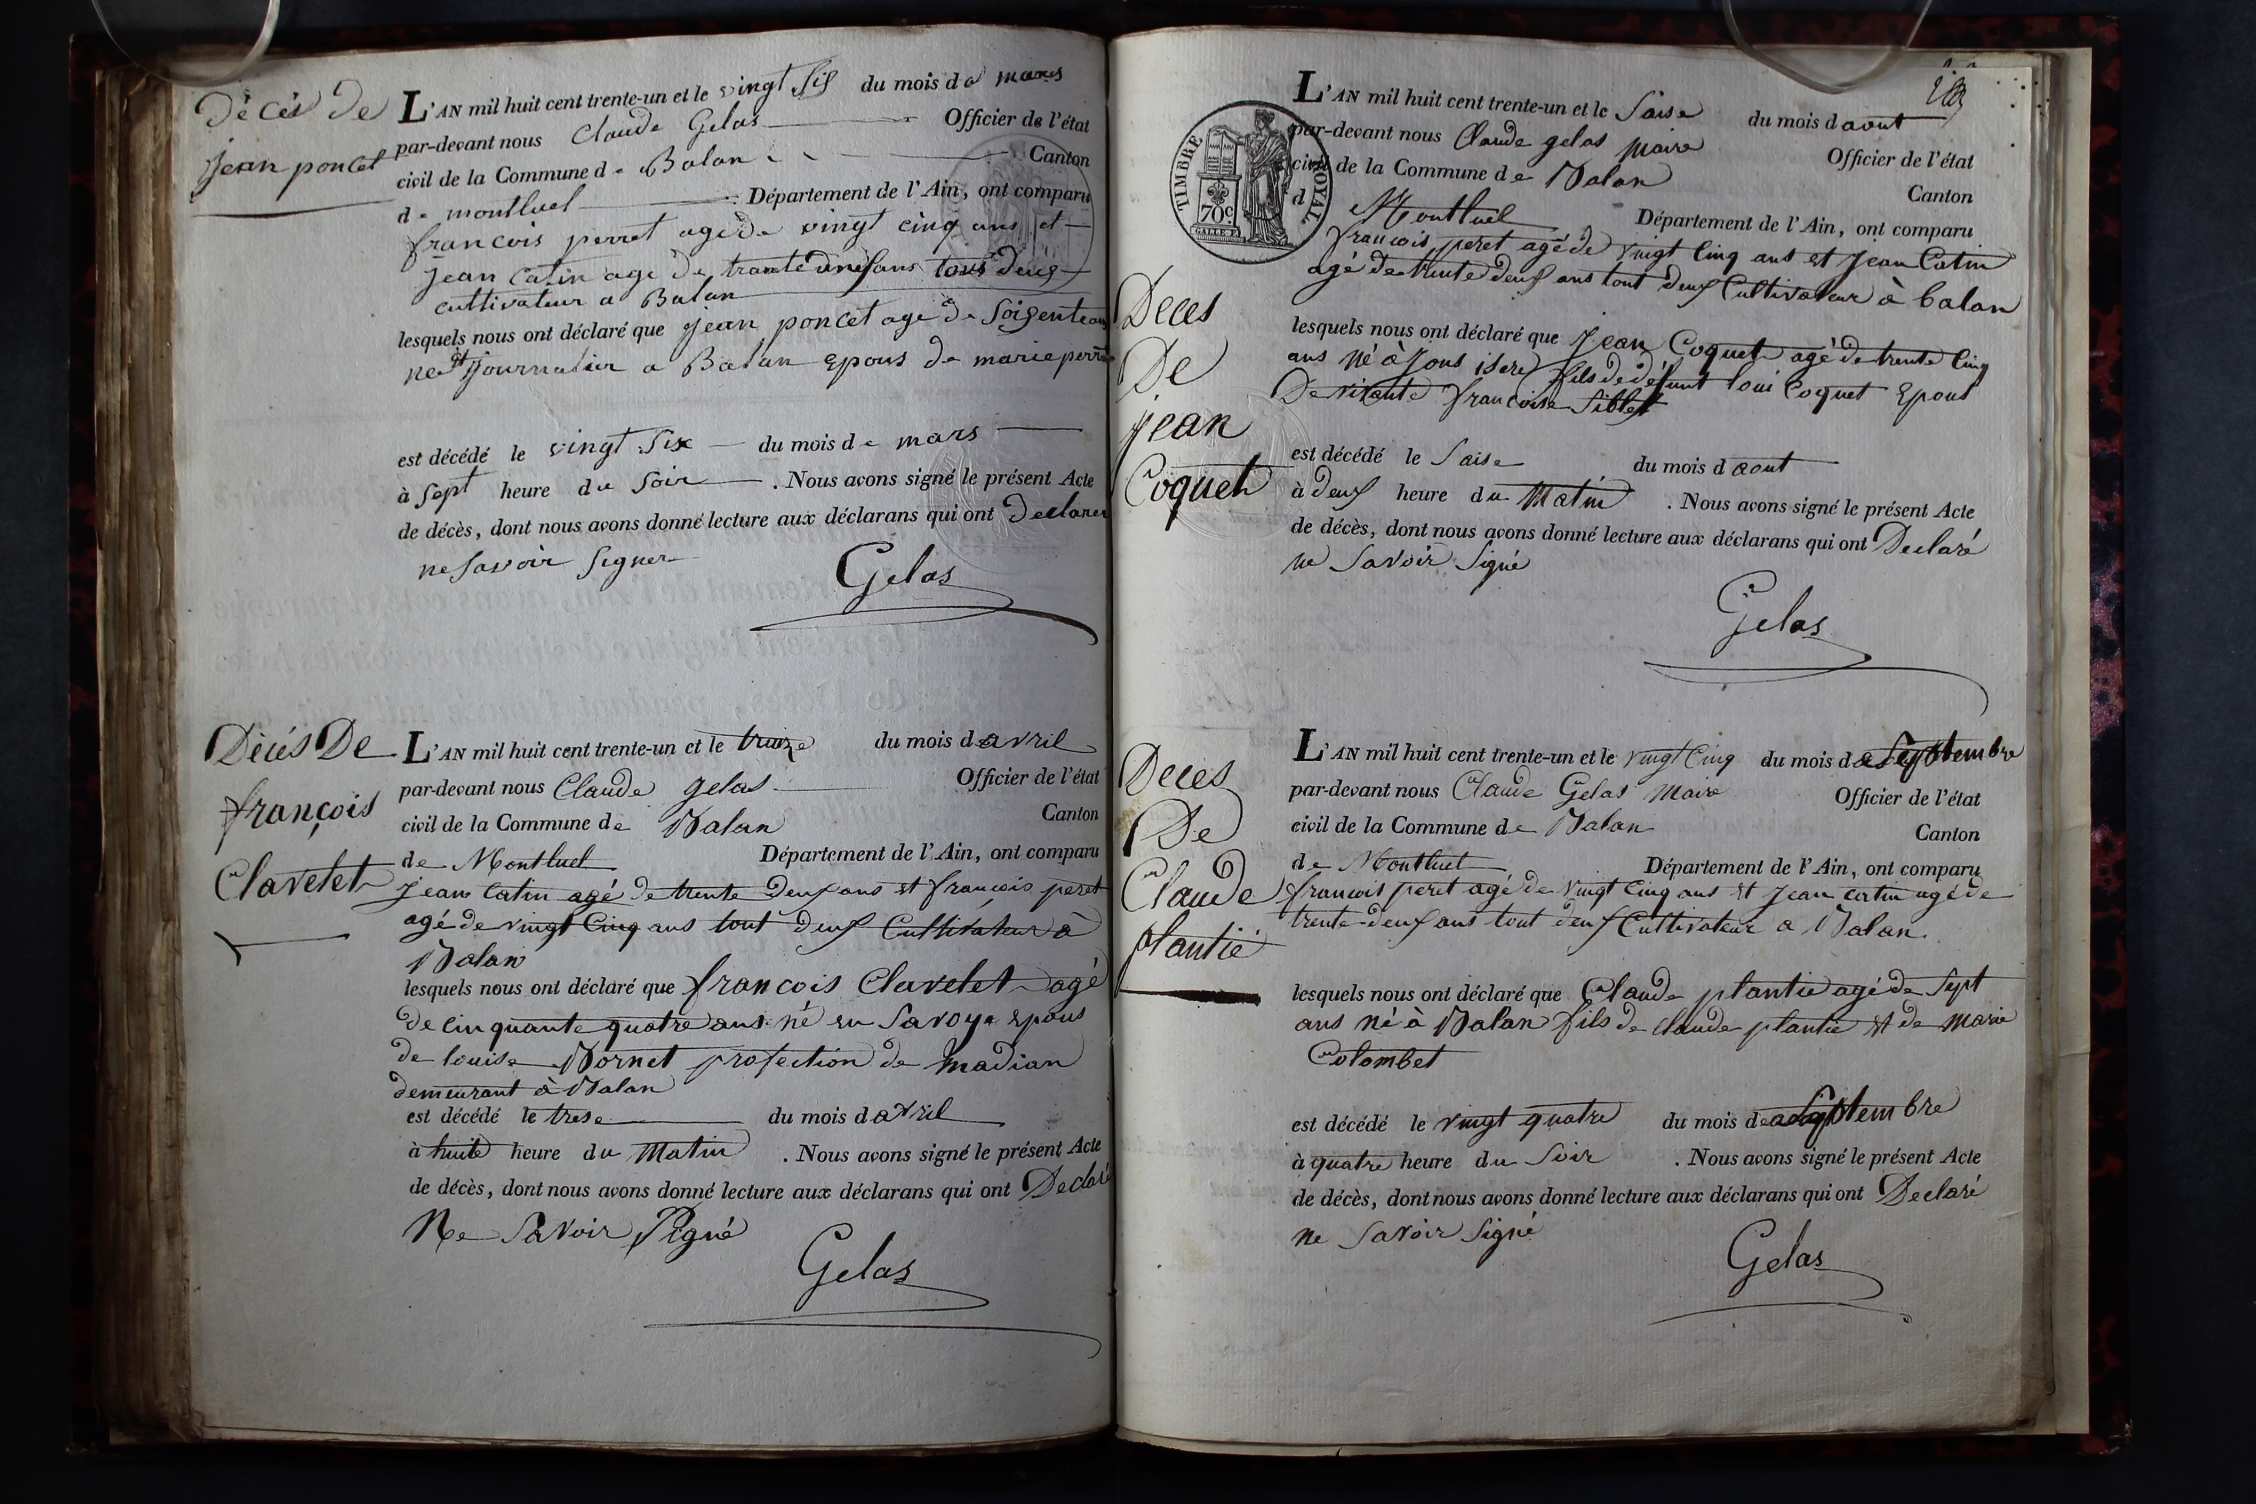 Décès De
jean poncet
L'AN mil huit cent trente-un et le vingt six du mois de mars
par-devant nous Claude Gelas Officier de l'état
civil de la Commune de Balan Canton
de montluel Département de l'Ain, ont comparu
francois perret age de vingt cinq ans et
jean catin age de trante tous deux
cultivateur a Balan
lesquels nous ont déclaré que jean poncet age de Soisente ans
journalier a Balan Epous de marie
est décédé le vingt Six du mois de mars
à Sept heure du Soir . Nous avons signé le présent Acte
de décès, dont nous avons donné lecture aux déclarans qui ont Declarer
ne Savoir Signer
Gelas
Décés De
françois
Clavelet
L'AN mil huit cent trente-un et le du mois de avril
par-devant nous Claude gelas Officier de l'état
civil de la Commune de Balan Canton
de Montluel Département de l'Ain, ont comparu
jean catin agé de trente Deux ans et francois peret
agé de vingt Cinq ans tout deux Cultivateur à
Balan
lesquels nous ont déclaré que francois Clavelet agé
de cinquante quatre ans né en Savoye Epous
de louise Bornet profection de madian
demeurant à Balan
est décédé le trese du mois d avril
à huite heure du Matin . Nous avons signé le présent Acte
de décès, dont nous avons donné lecture aux déclarans qui ont Declaré
Ne Savoir Signé
Gelas
TIMBRE ROYAL
70c
Deces
De
jean
Coquet
L'AN mil huit cent trente-un et le Saise du mois d aout
par-devant nous Claude gelas maire Officier de l'état
civil de la Commune de Balan Canton
d Montluel Département de l'Ain, ont comparu
francois peret agé de vingt Cinq ans et jean Catin
agé de trente deux ans tout deux Cultivateur à balan
lesquels nous ont déclaré que jean Coquet agé de trente Cinq
ans né à jons isere fils de défunt loui Coquet Epous
De vivante francoise
est décédé le Saise du mois d aout
à deux heure du Matin . Nous avons signé le présent Acte
de décès, dont nous avons donné lecture aux déclarans qui ont Declaré
ne Savoir Signé
Gelas
Deces
De
Claude
plantié
L'AN mil huit cent trente-un et le vingt Cinq du mois de Septembre
par-devant nous Claude Gelas Maire Officier de l'état
civil de la Commune de Balan Canton
de Montluel Département de l'Ain, ont comparu
francois peret agé de vingt Cinq ans et jean catin agé de
trente-deux ans tout deux Cultivateur a Balan
lesquels nous ont déclaré que Claude plantie agé de Sept
ans né à Balan fils de claude plantie et de marie
Colombet
est décédé le vingt quatre du mois de Septembre
à quatre heure du Soir . Nous avons signé le présent Acte
de décès, dont nous avons donné lecture aux déclarans qui ont Declaré
ne Savoir Signé
Gelas